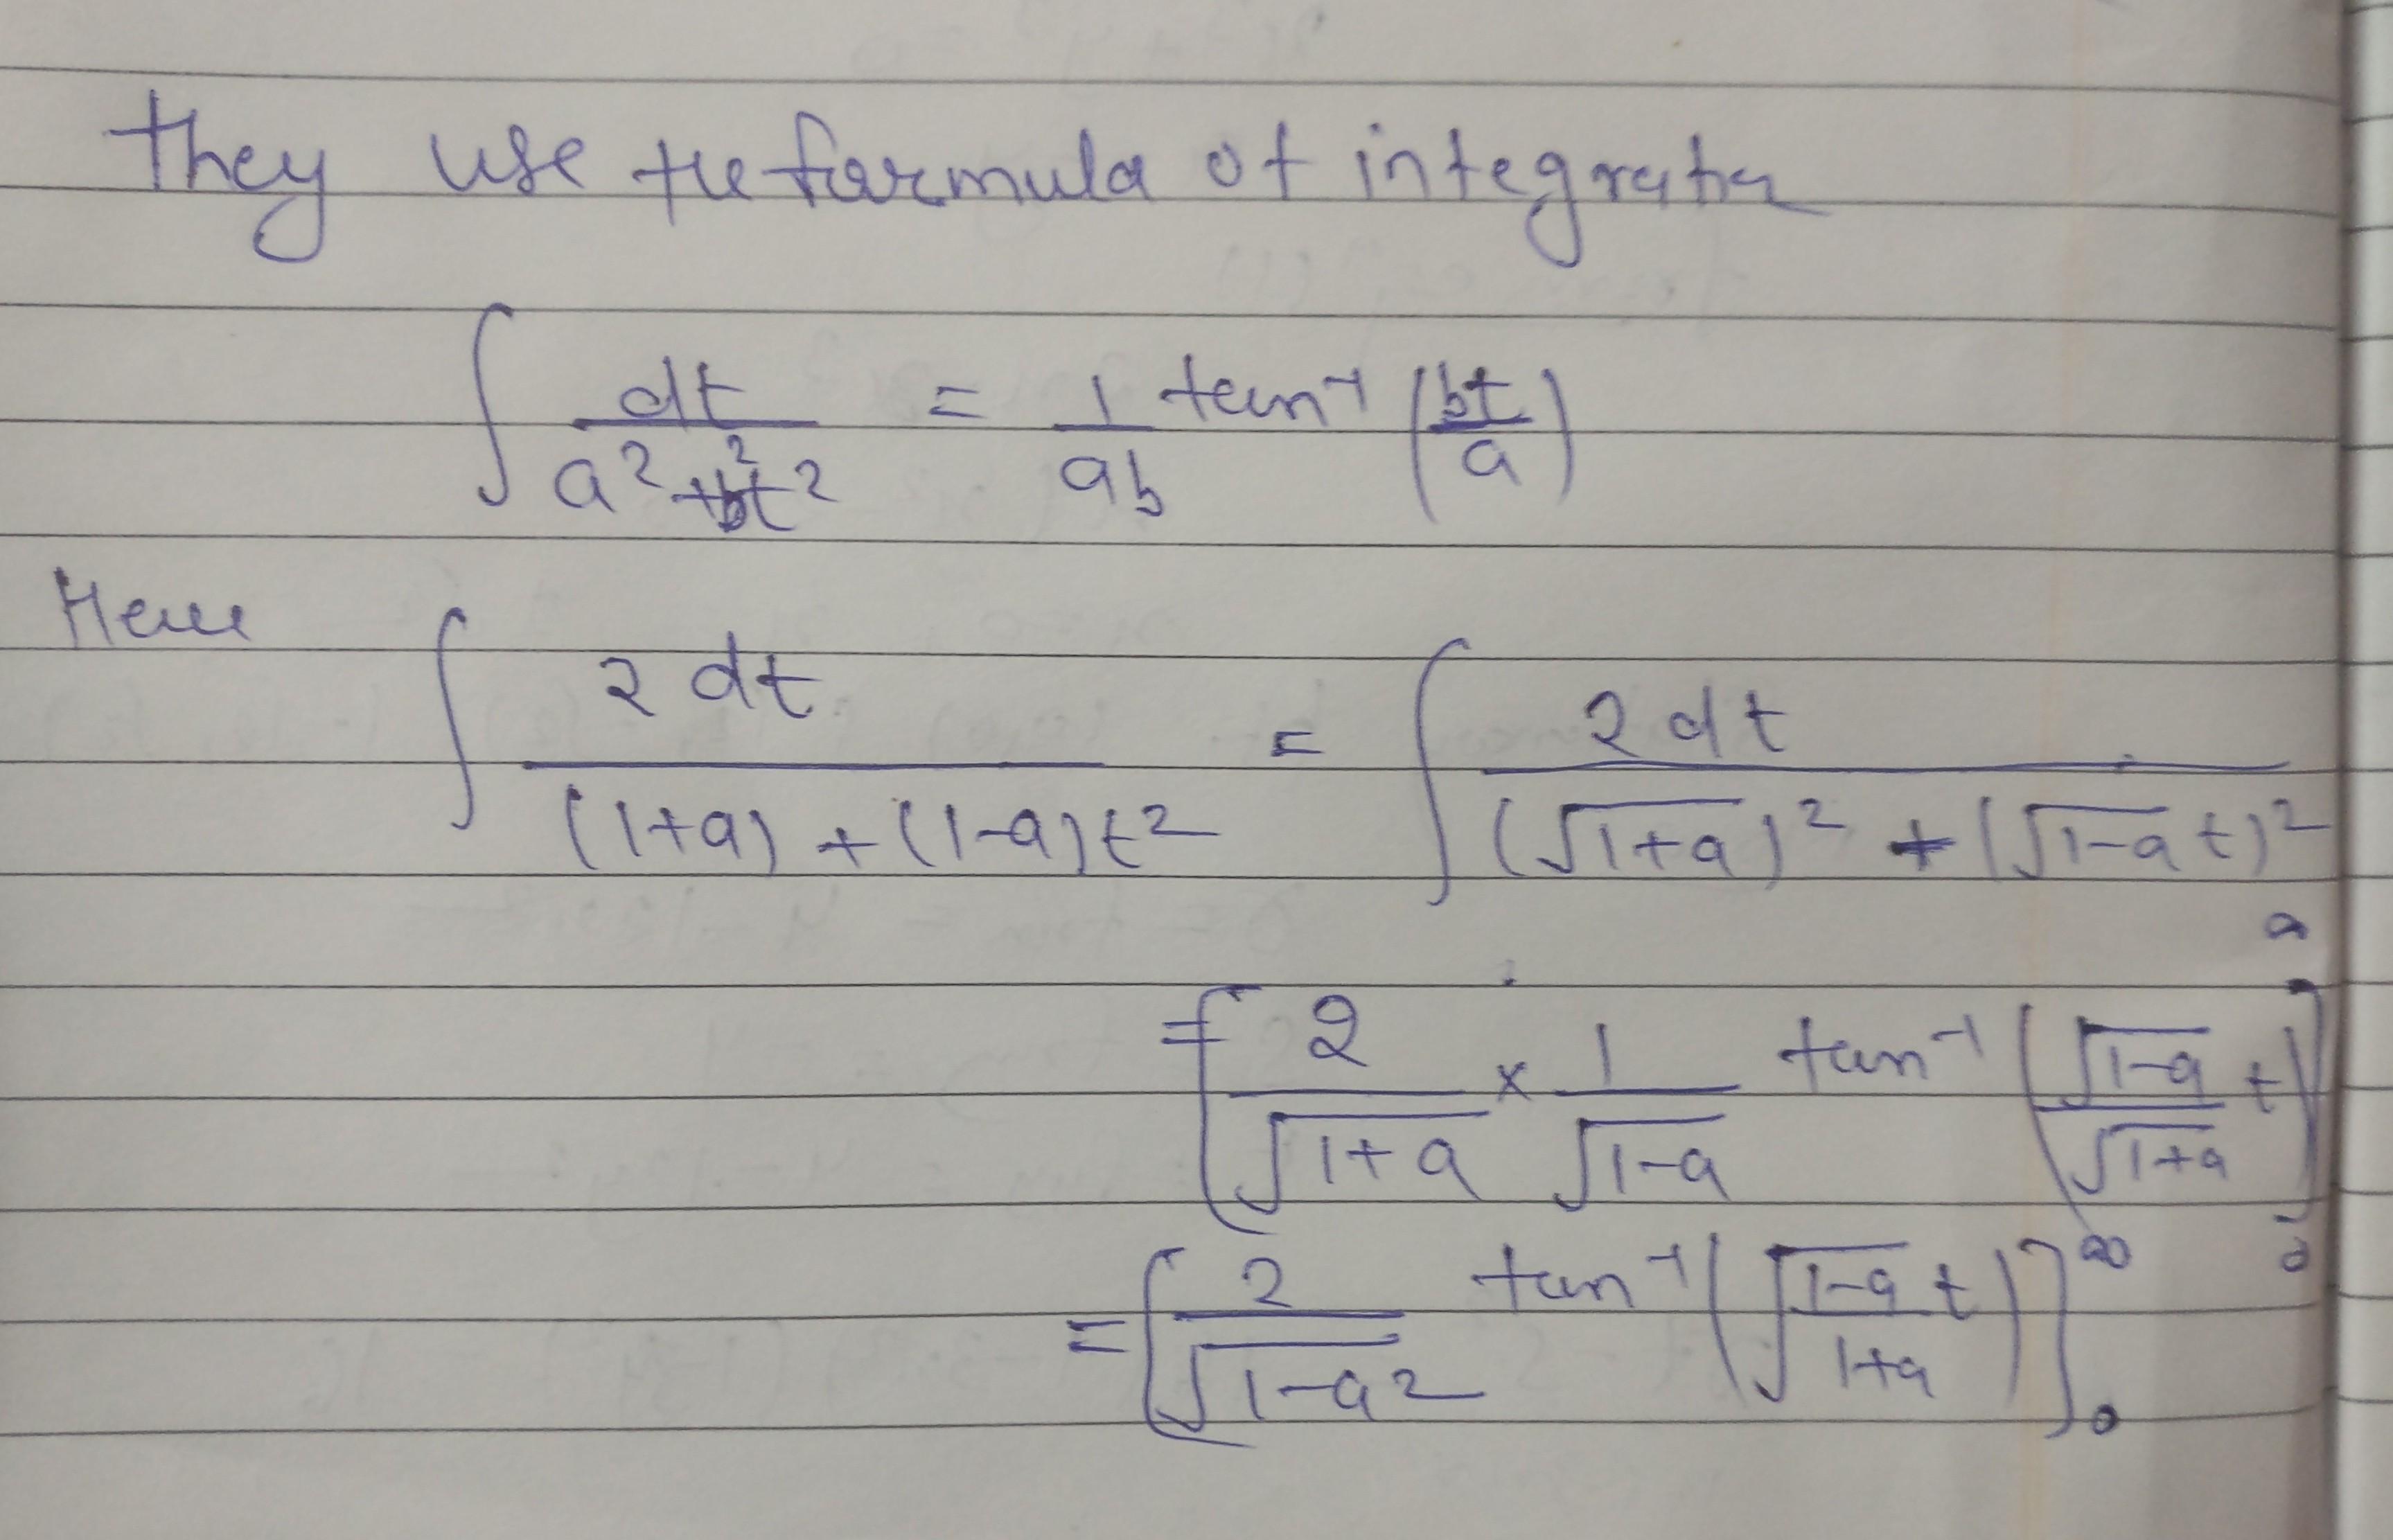 they use the formula of integration
∫ dt / (a² + b²t²) = 1/ab tan⁻¹ (bt/a)
Here ∫ 2 dt / ((1+a) + (1-a)t²) = ∫ 2dt / ((√1+a)² + (√1-a t)²)
= [2/√1+a × 1/√1-a tan⁻¹ (√1-a/√1+a t)]₀
= [2/√1-a² tan⁻¹ (√(1-a/1+a) t)]₀^∞